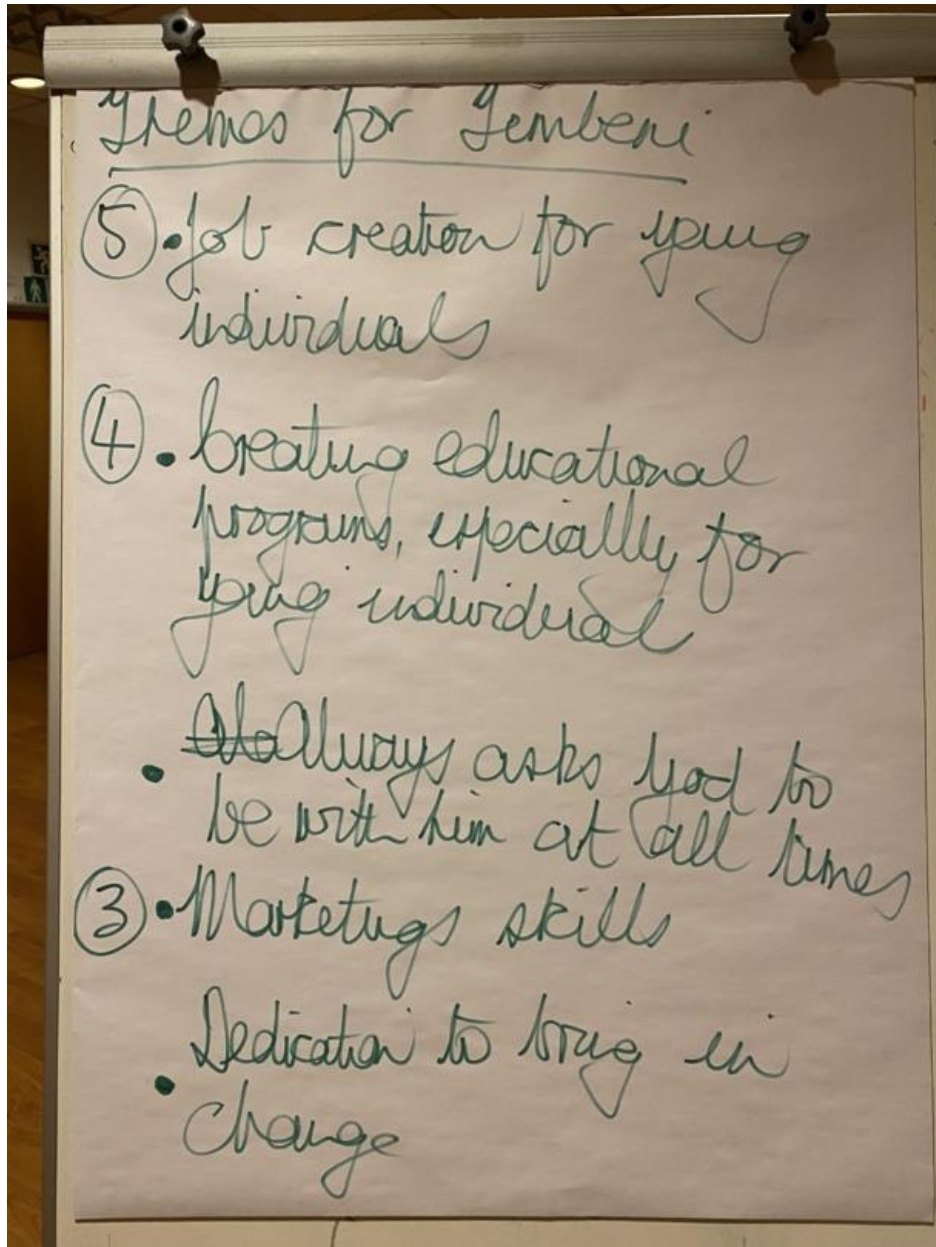 Themes for Tembeni
5 • Job creation for young
individuals
4 • Creating educational
programs, especially for
young individual
• Always asks God to
be with him at all times
3 • Marketings skills
Dedication to bring in
• change